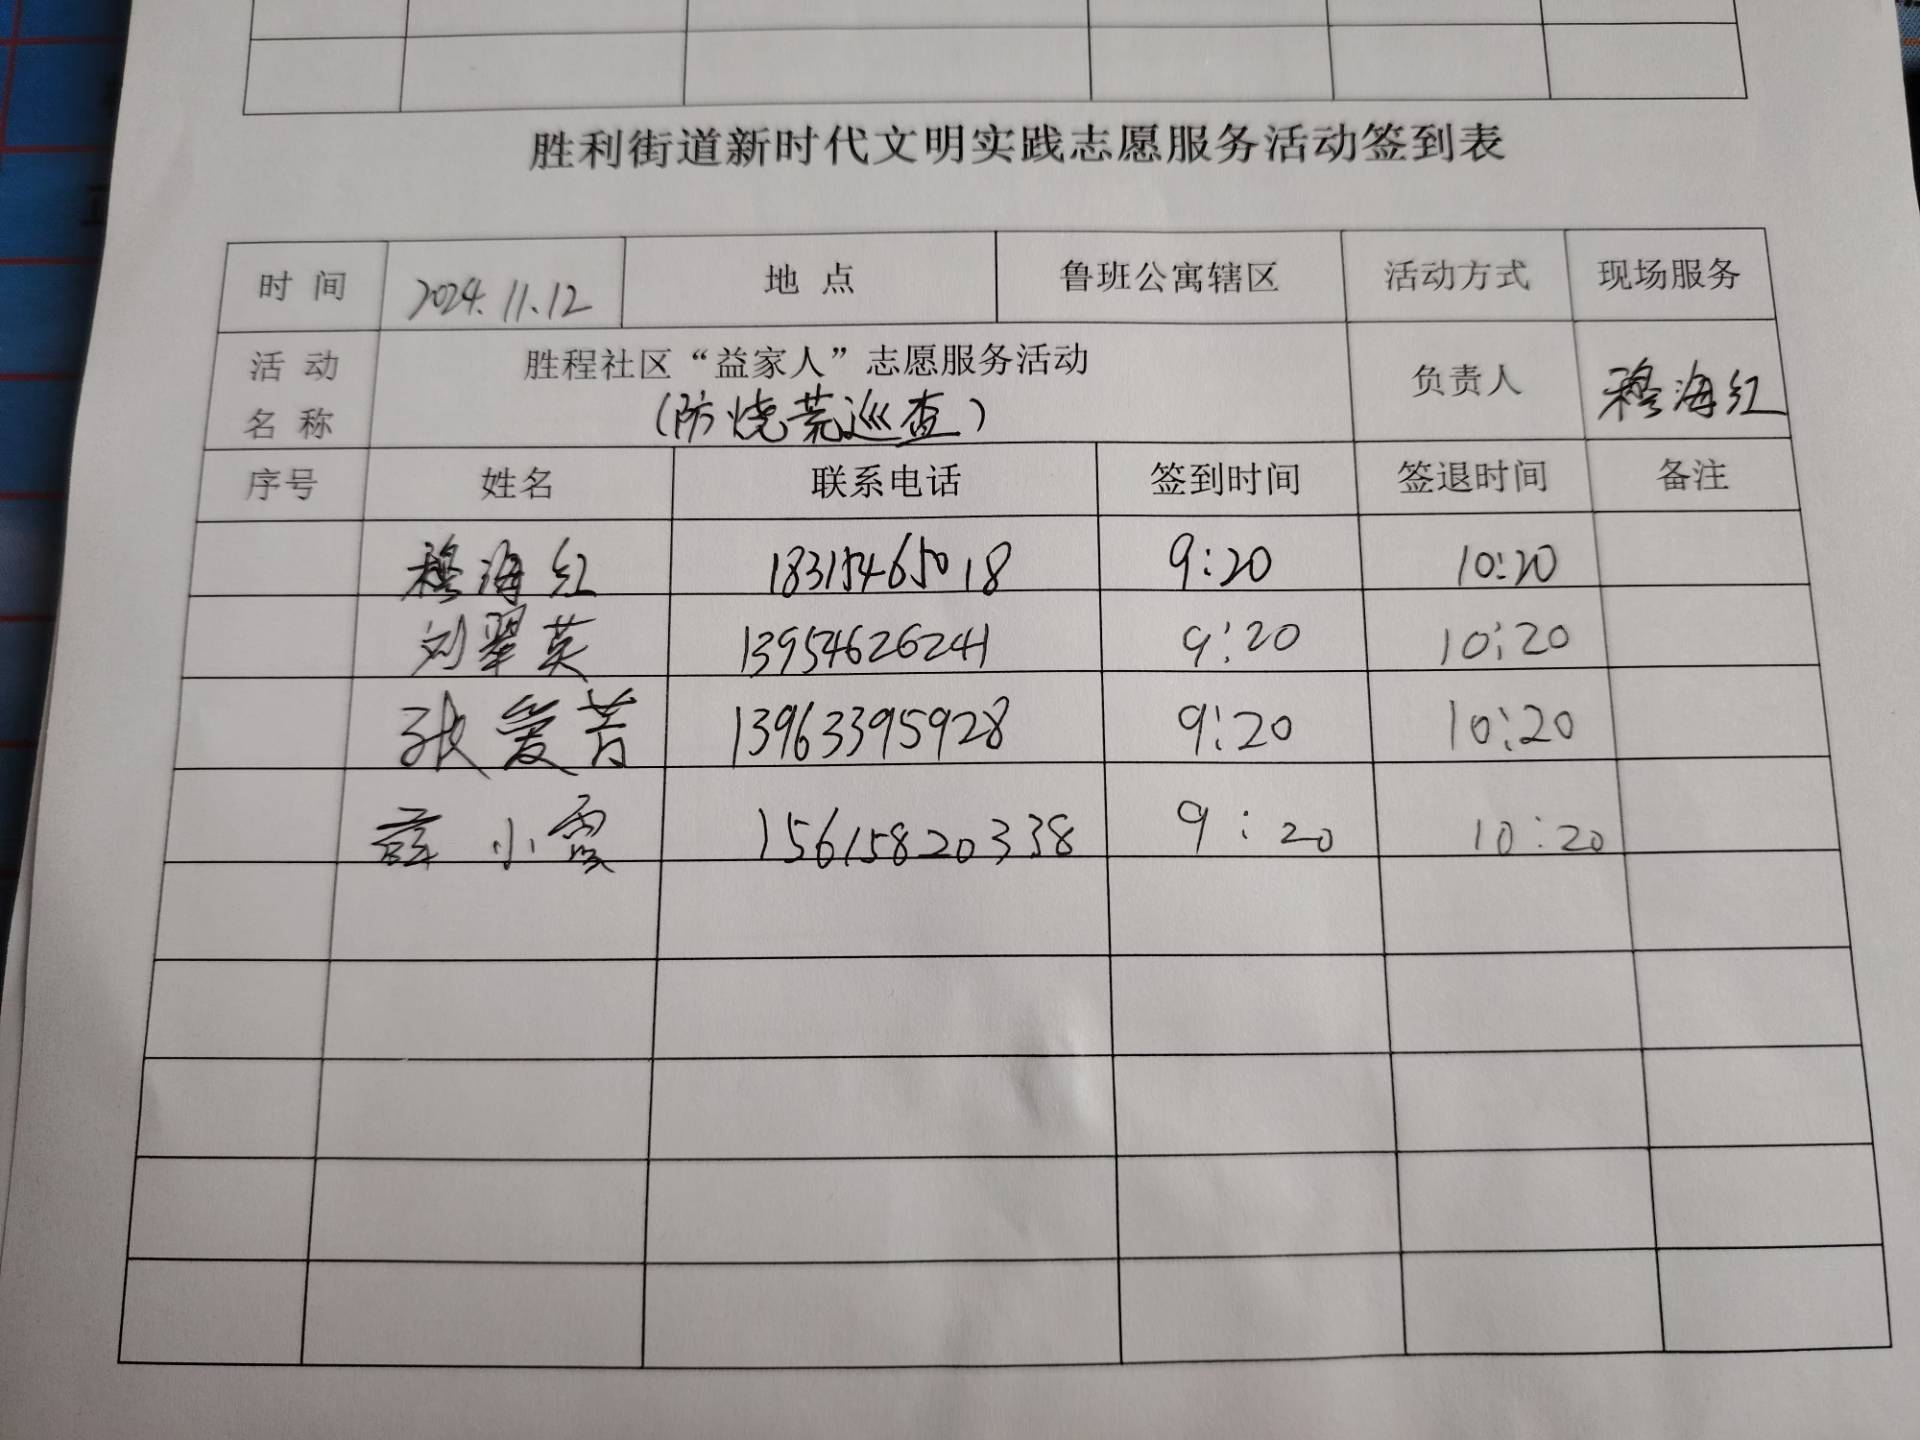 胜利街道新时代文明实践志愿服务活动签到表
时间 2024.11.12 地点 鲁班公寓辖区 活动方式 现场服务
活动名称 胜程社区“益家人”志愿服务活动 负责人 穆海红
(防烧荒巡查)
序号 姓名 联系电话 签到时间 签退时间 备注
穆海红 18315465018 9:20 10:20
刘翠英 13954626241 9:20 10:20
张爱菁 13963395928 9:20 10:20
薛小霞 15615820338 9:20 10:20